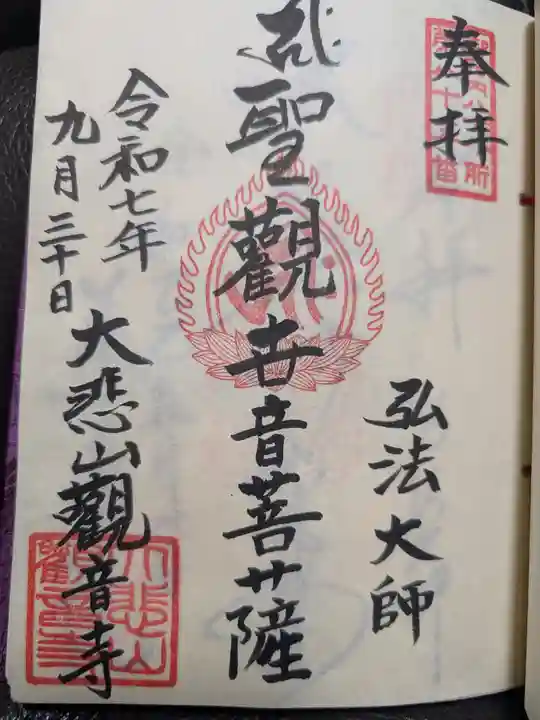 奉拝
弘法大師
聖觀世音菩薩
令和七年
九月三十日
大悲山觀音寺
大悲山
觀音寺